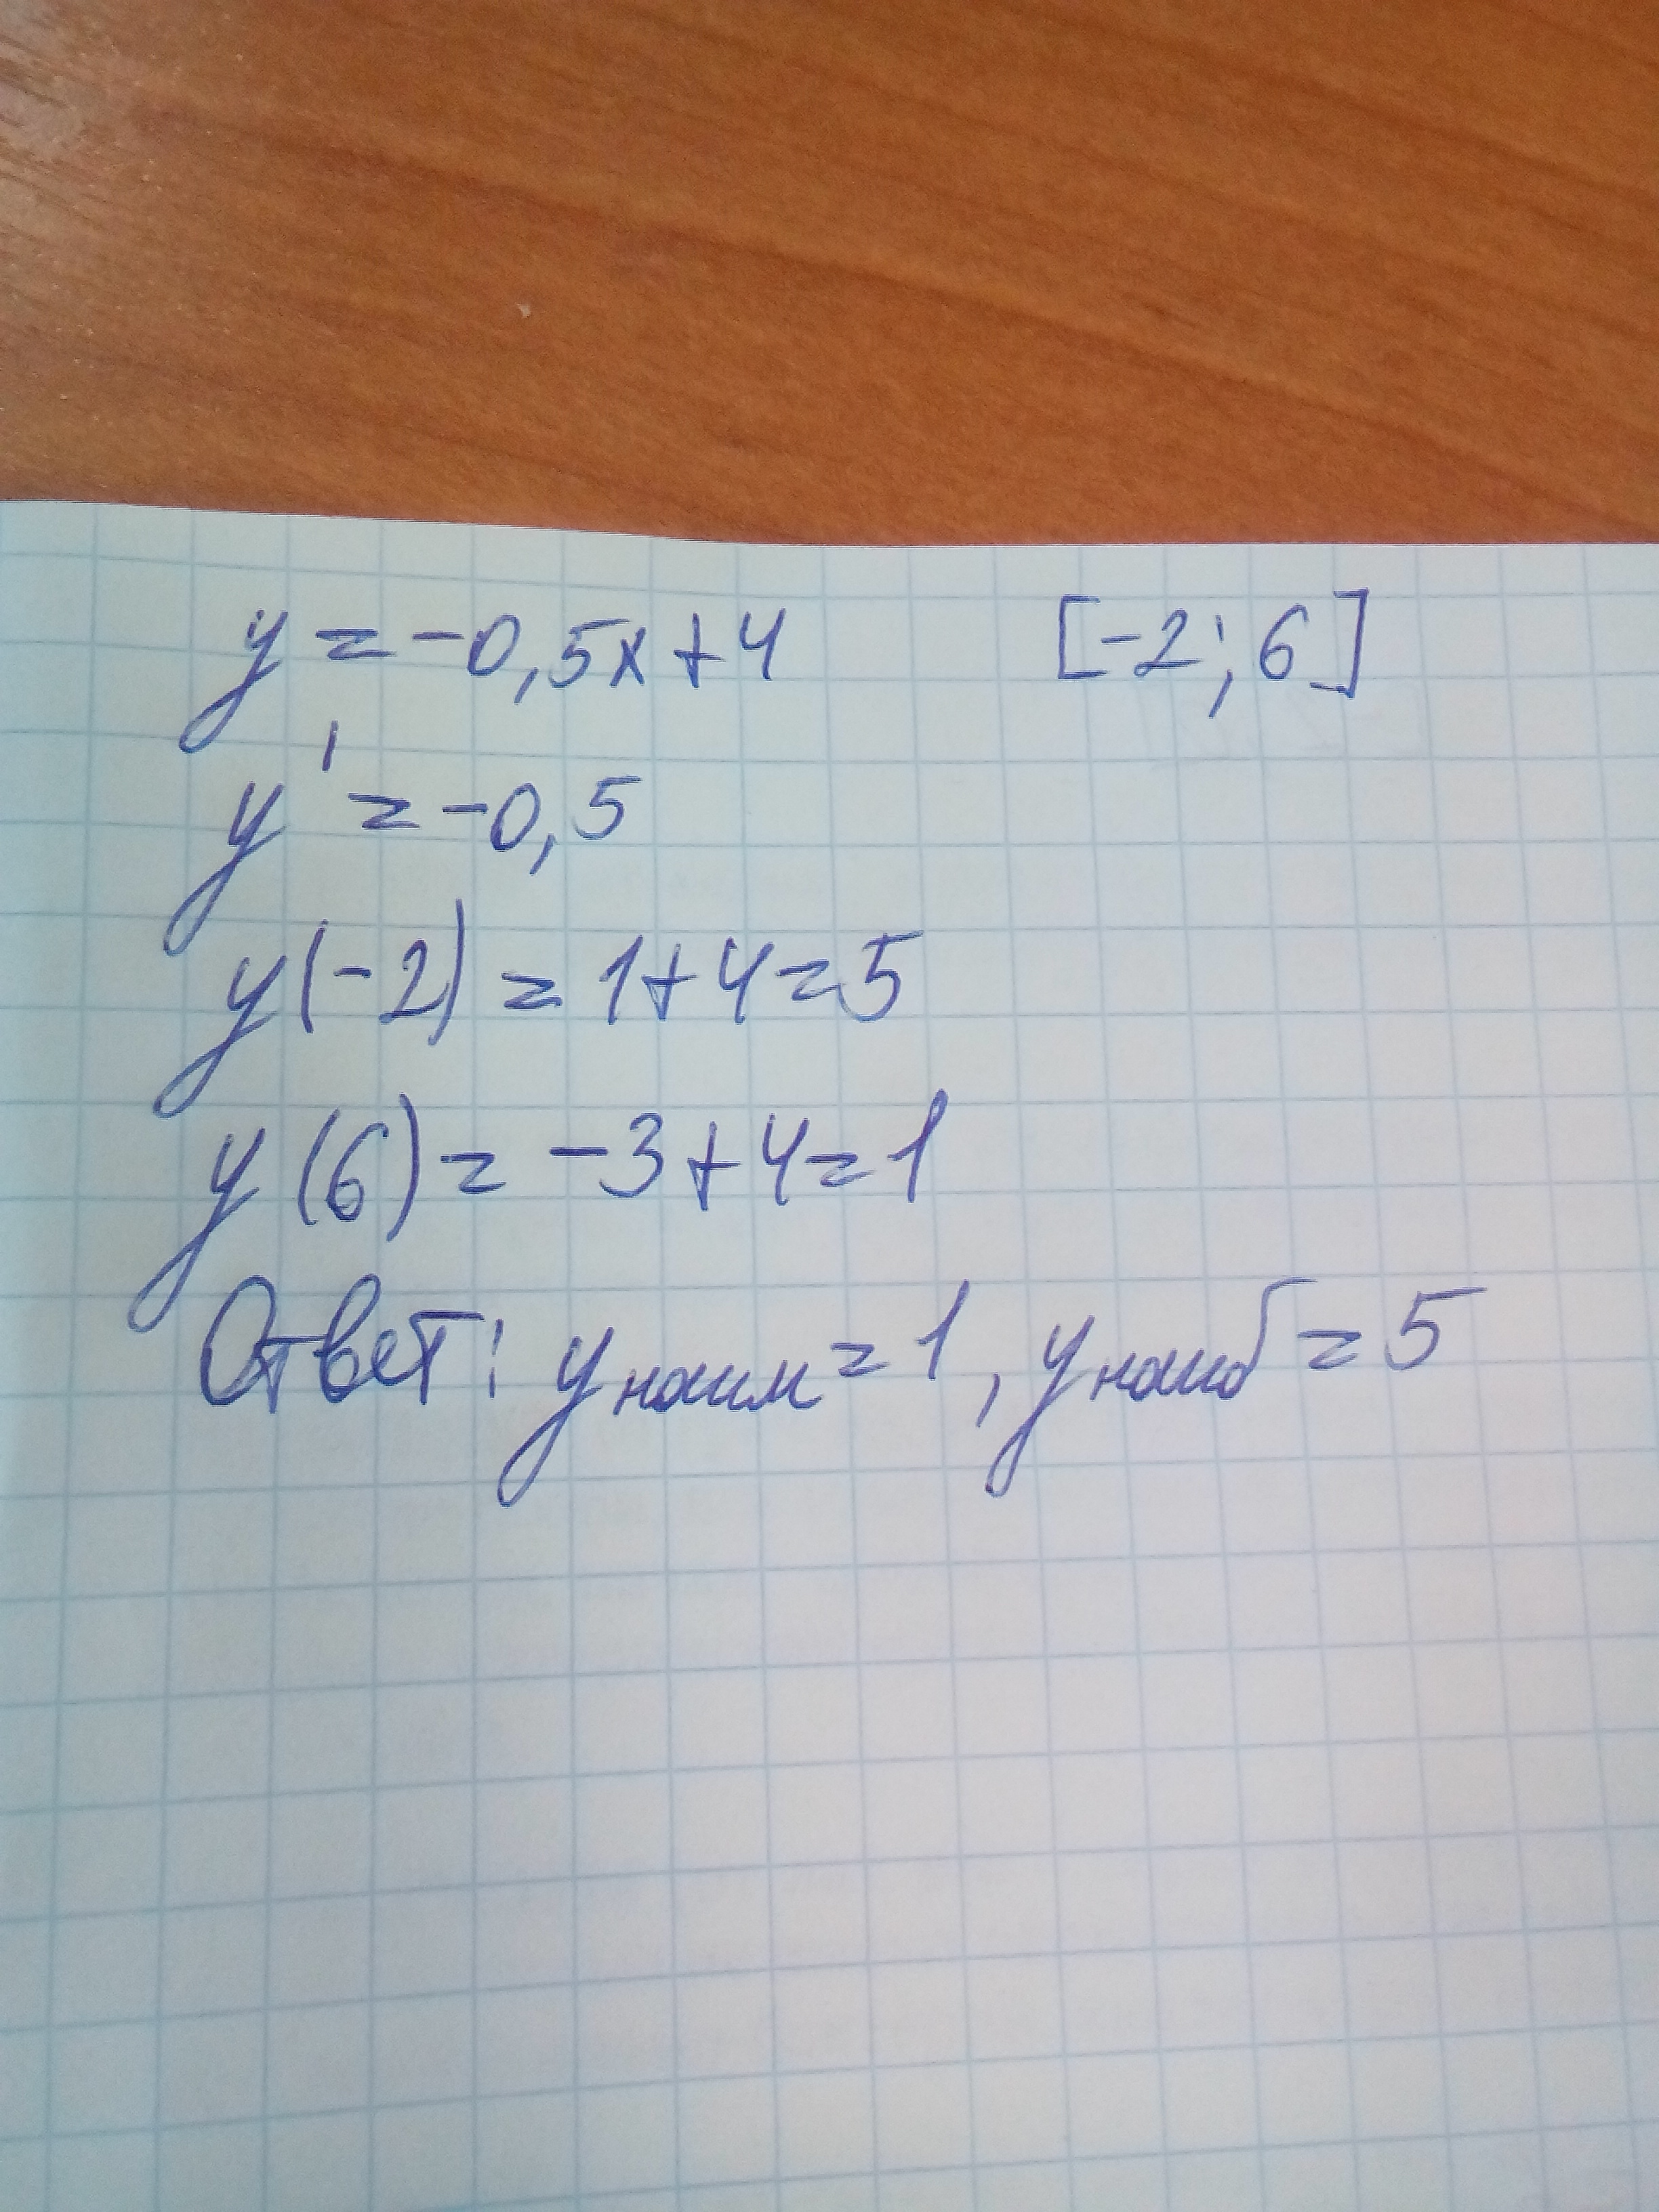 y = -0,5x+4 [-2; 6]
y' = -0,5
y(-2) = 1+4=5
y(6) = -3+4=1
Ответ: y наим = 1, y наиб = 5